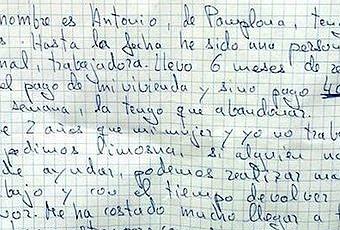 nombre es Antonio, de Pamplona, teng
s. Hasta la fecha he sido una person
nal, trabajadora. Llevo 6 meses de re
el pago de mi vivienda y sino pago 40
semana, la tengo que abandonar.
e 2 años que mi mujer y yo no trab
pedimos limosna, si alguien no
de ayudar, podemos realizar
bajo y con el tiempo devolver
vor. Me ha costado mucho llegar a